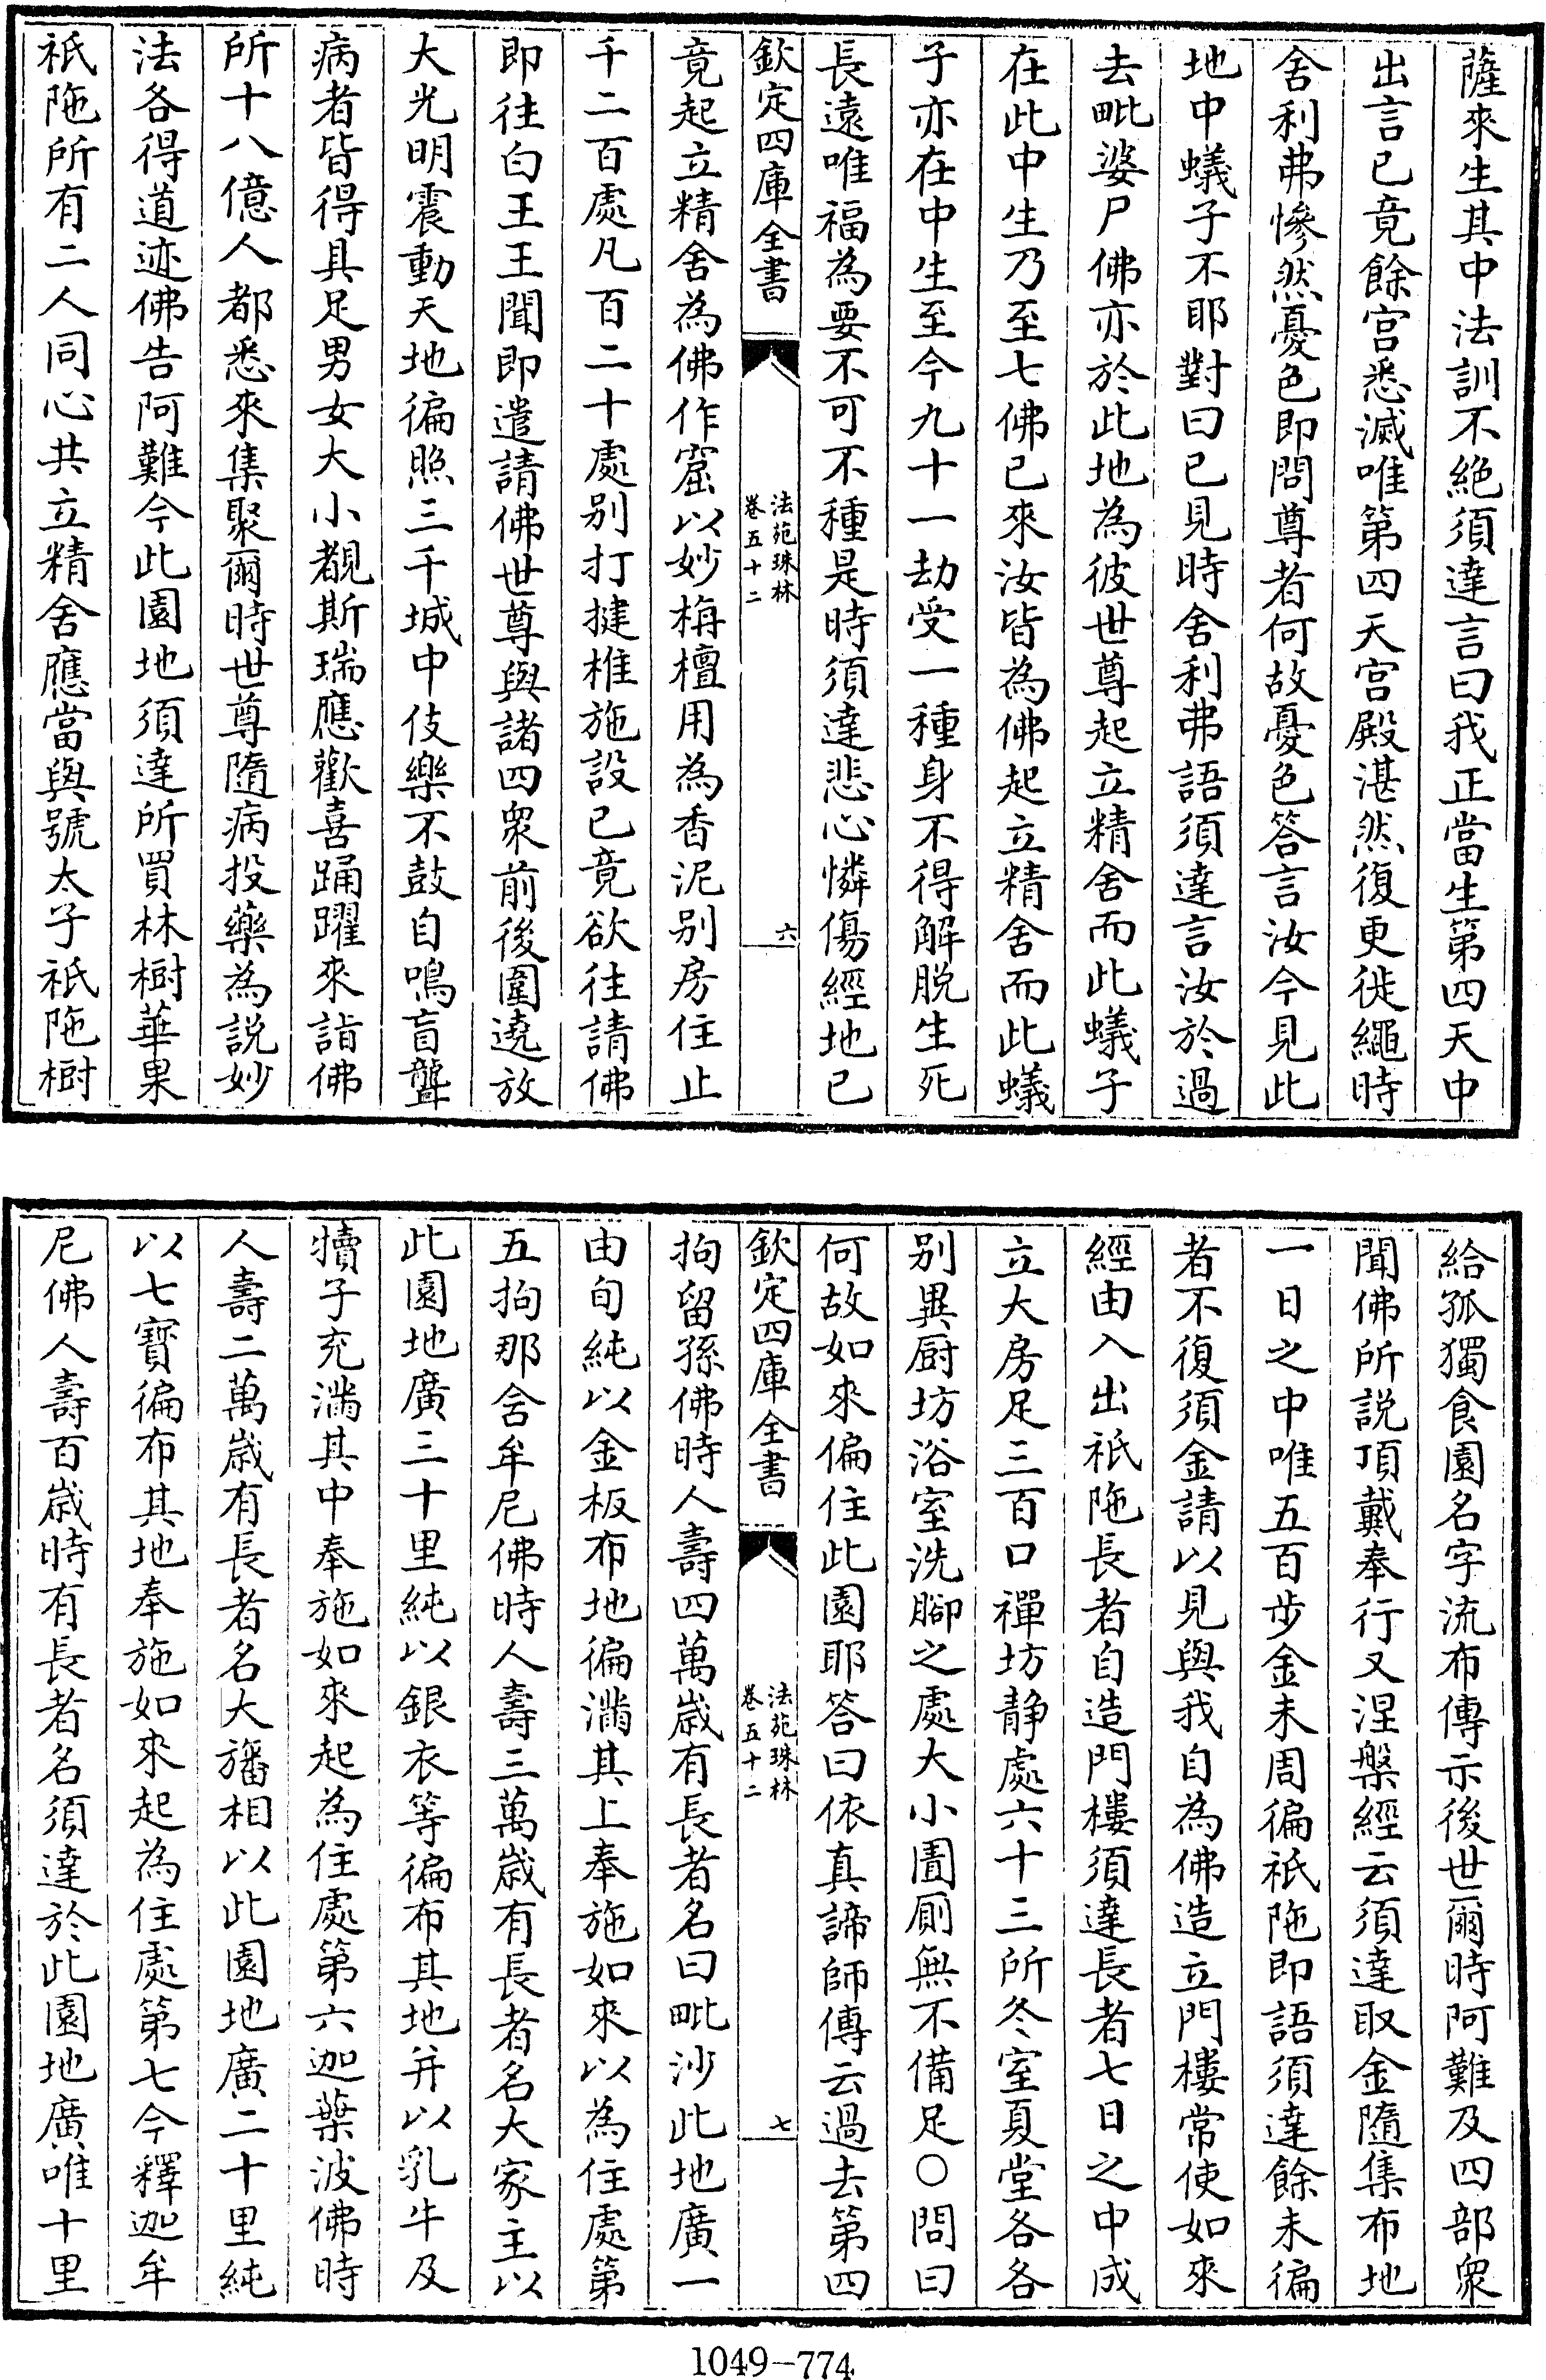 薩來生其中法訓不絶須達言曰我正當生第四天中
出言已竟餘宫悉滅唯第四天宫殿湛然復更徙繩時
舍利弗慘然憂色即問尊者何故憂色答言汝今見此
地中蟻子不耶對曰已見時舍利弗語須達言汝於過
去毗婆尸佛亦於此地為彼世尊起立精舍而此蟻子
在此中生乃至七佛已來汝皆為佛起立精舍而此蟻
子亦在中生至今九十一劫受一種身不得解脱生死
長遠唯福為要不可不種是時須達悲心憐傷經地已
欽定四庫全書
法苑珠林
卷五十二
六
竟起立精舍為佛作窟以妙栴檀用為香泥别房住止
千二百處凡百二十處别打揵椎施設已竟欲往請佛
即往白王王聞即遣請佛世尊與諸四衆前後圍遶放
大光明震動天地徧照三千城中伎樂不鼓自鳴盲聾
病者皆得具足男女大小覩斯瑞應歡喜踊躍來詣佛
所十八億人都悉來集聚爾時世尊隨病投藥為説妙
法各得道迹佛告阿難今此園地須達所買林樹華果
祇陁所有二人同心共立精舍應當與號太子祇陁樹
給孤獨食園名字流布傳示後世爾時阿難及四部衆
聞佛所説頂戴奉行又涅槃經云須達取金隨集布地
一日之中唯五百步金未周徧祇陁即語須達餘未徧
者不復須金請以見與我自為佛造立門樓常使如來
經由入出祇陁長者自造門樓須達長者七日之中成
立大房足三百口禪坊静處六十三所冬室夏堂各各
别異厨坊浴室洗腳之處大小圊厠無不備足○問曰
何故如來偏住此園耶答曰依真諦師傳云過去第四
欽定四庫全書
法苑珠林
卷五十二
七
拘留孫佛時人壽四萬歲有長者名曰毗沙此地廣一
由旬純以金板布地徧滿其上奉施如來以為住處第
五拘那含牟尼佛時人壽三萬歲有長者名大家主以
此園地廣三十里純以銀衣等徧布其地并以乳牛及
犢子充滿其中奉施如來起為住處第六迦葉波佛時
人壽二萬歲有長者名大旛相以此園地廣二十里純
以七寶徧布其地奉施如來起為住處第七今釋迦牟
尼佛人壽百歲時有長者名須達於此園地廣唯十里
1049-774